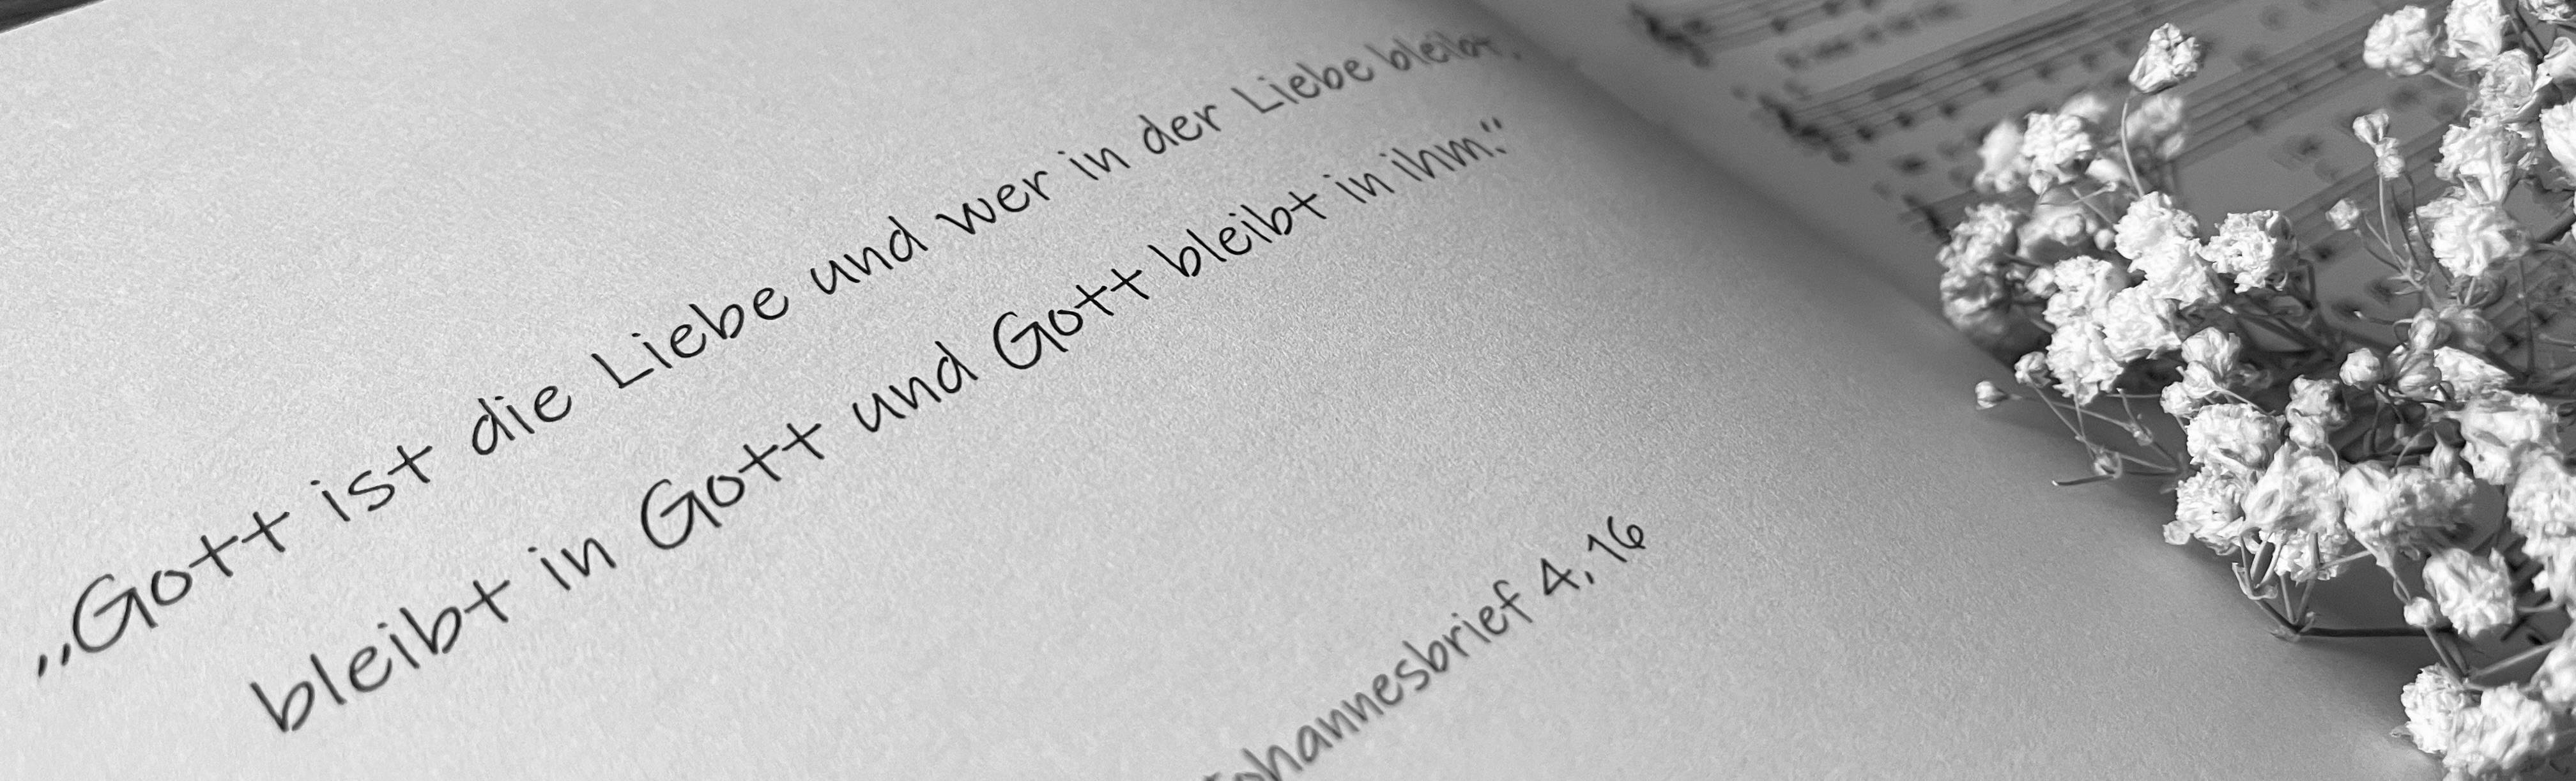 „Gott ist die Liebe und wer in der Liebe bleibt,
bleibt in Gott und Gott bleibt in ihm.“
Johannesbrief 4, 16